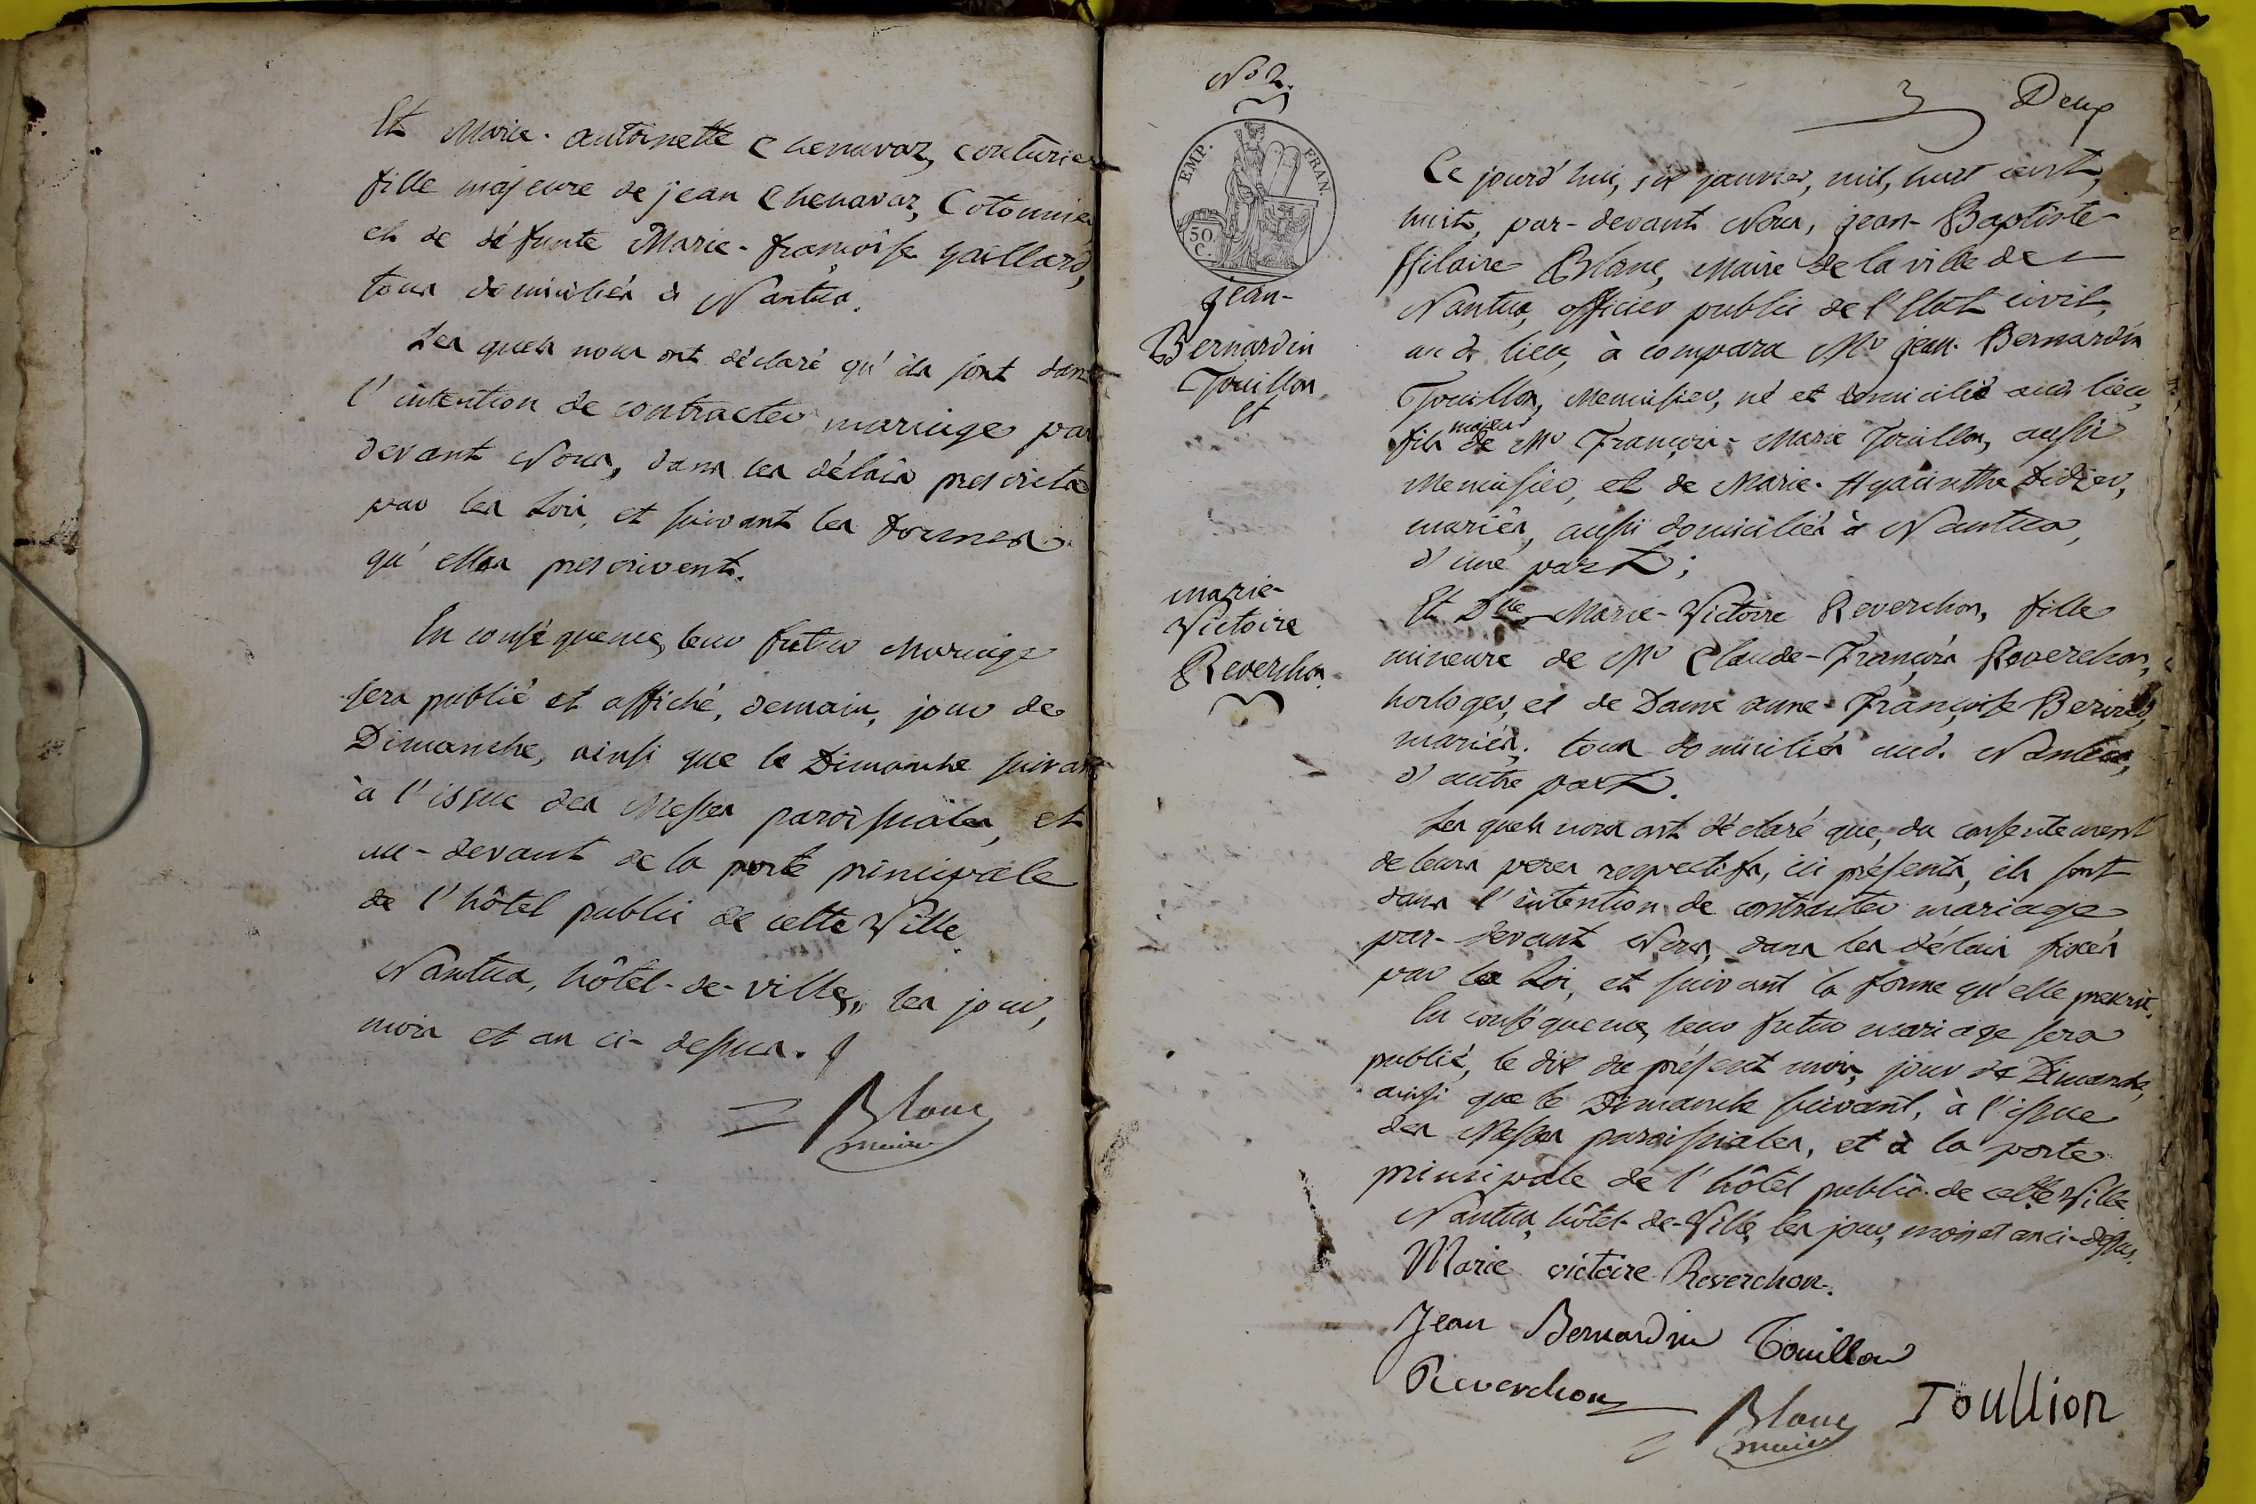 Et Marie-antoinette Chenavaz, couturier
fille majeure de jean Chenavaz, Cotonnier,
et de défunte Marie-françoise Gaillard,
tous domiciliés à Nantua.
Les quels nous ont déclaré qu'ils sont dans
l'intention de contracter mariage par
devant Nous, dans les délais prescrits
par les Lois, et suivant les formes
qu'elles prescrivent.
En conséquence, leur futur Mariage
sera publié et affiché, demain, jour de
Dimanche, ainsi que le Dimanche suivant
à l'issue des Messes paroissiales, et
au-devant de la porte principale
de l'hôtel public de cette Ville.
Nantua, hôtel-de-ville, les jour,
mois et an ci-dessus.
Blanc
maire
N° 2.
EMP. FRAN.
50
C.
Jean-
Bernardin
Touillon
et
marie-
Victoire
Reverchon.
Deux
Ce jourd'hui, six janvier, mil, huit cent,
huit, par-devant Nous, jean-Baptiste-
hilaire Blanc, Maire de la ville de
Nantua, officier public de l'Etat civil,
aud. lieu, à comparu Mr jean-Bernardin
Touillon, Menuisier, né et domicilié aud. lieu,
fils majeur de Mr François-Marie Touillon, aussi
Menuisier, et de Marie-Hyacinthe Didier,
mariés, aussi domiciliés à Nantua,
d'une part;
Et Dlle Marie-Victoire Reverchon, fille
mineure de Mr Claude-François Reverchon,
horloger, et de Dame anne-Françoise
mariés, tous domiciliés aud. Nantua,
d'autre part.
Les quels nous ont déclaré que, du consentement
de leurs peres respectifs, ici présents, ils sont
dans l'intention de contracter mariage
par-devant Nous, dans les délais fixés
par la Loi, et suivant la forme qu'elle prescrit.
En conséquence, leur futur mariage sera
publié, le dix du présent mois, jour de Dimanche,
ainsi que le Dimanche suivant, à l'issue
des Messes paroissiales, et à la porte
principale de l'hôtel public de cette Ville
Nantua, hôtel-de-Ville, les jour, mois et an ci-dessus.
Marie victoire Reverchon.
Jean Bernardin Touillon
Reverchon
Blanc
maire
Toullion